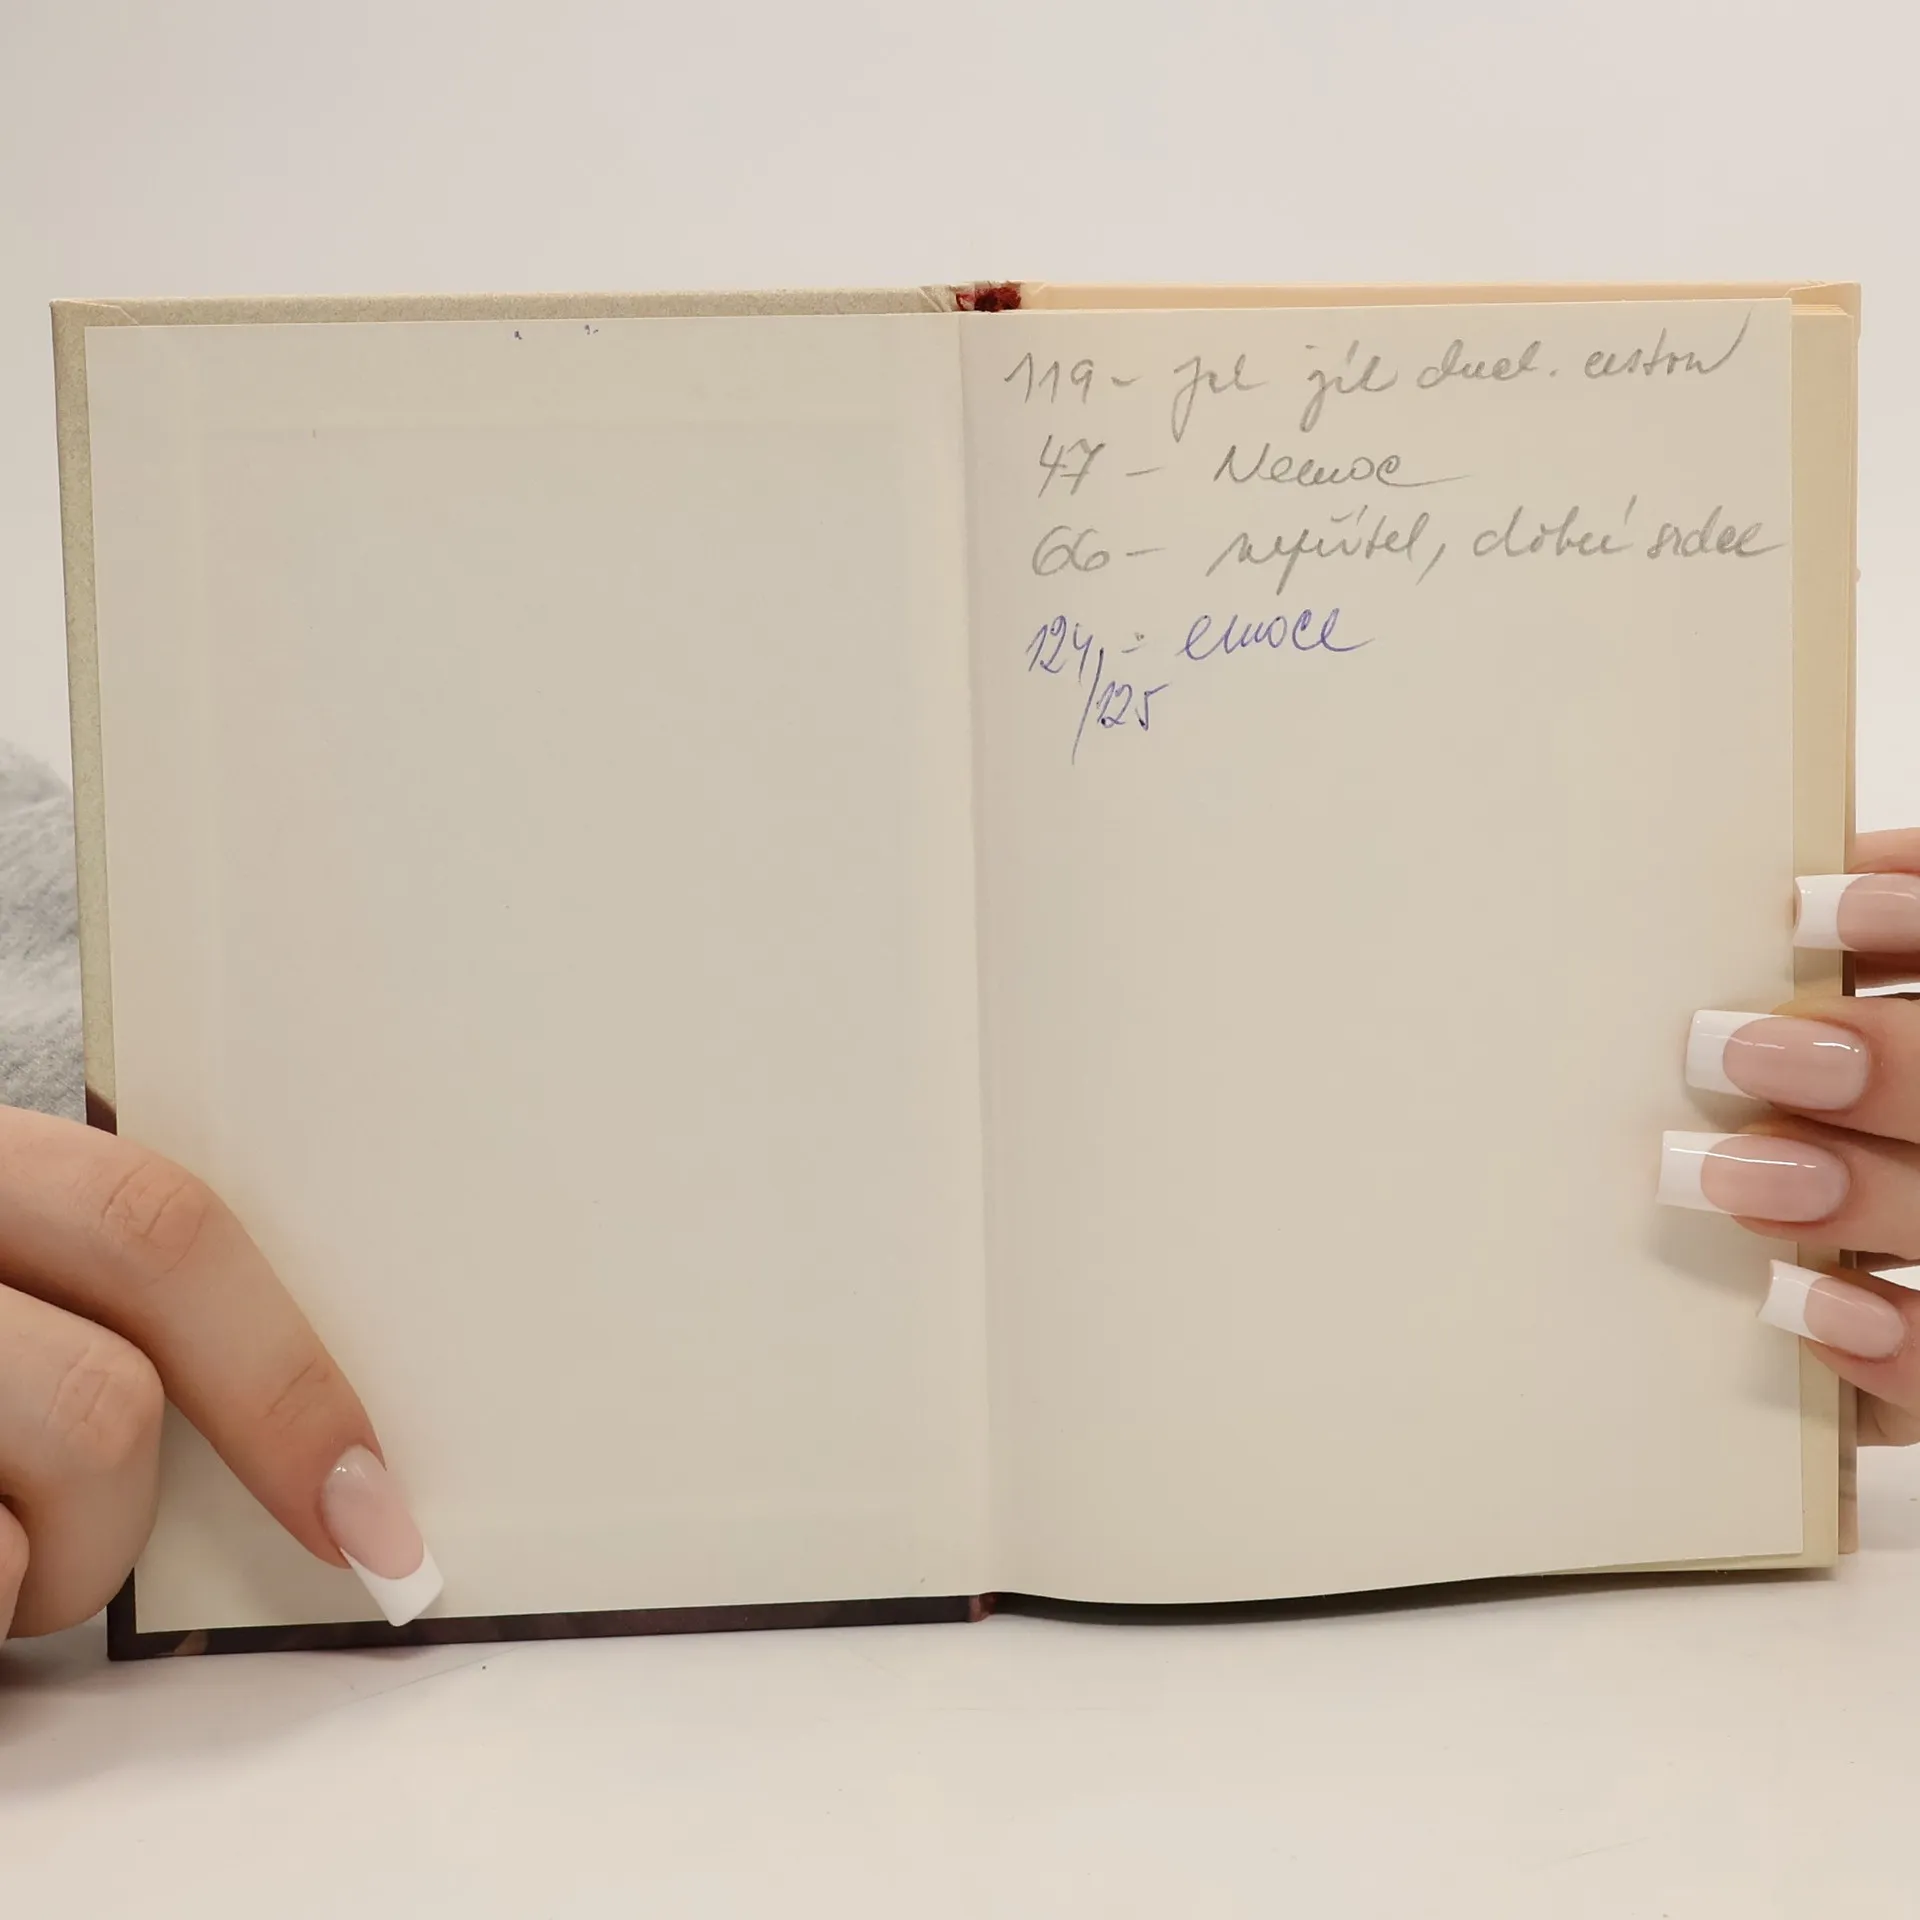 119 - jak žít duch. cestou
47 - Nemoc
66 - nepřítel, dobré srdce
124, - emoce
/125